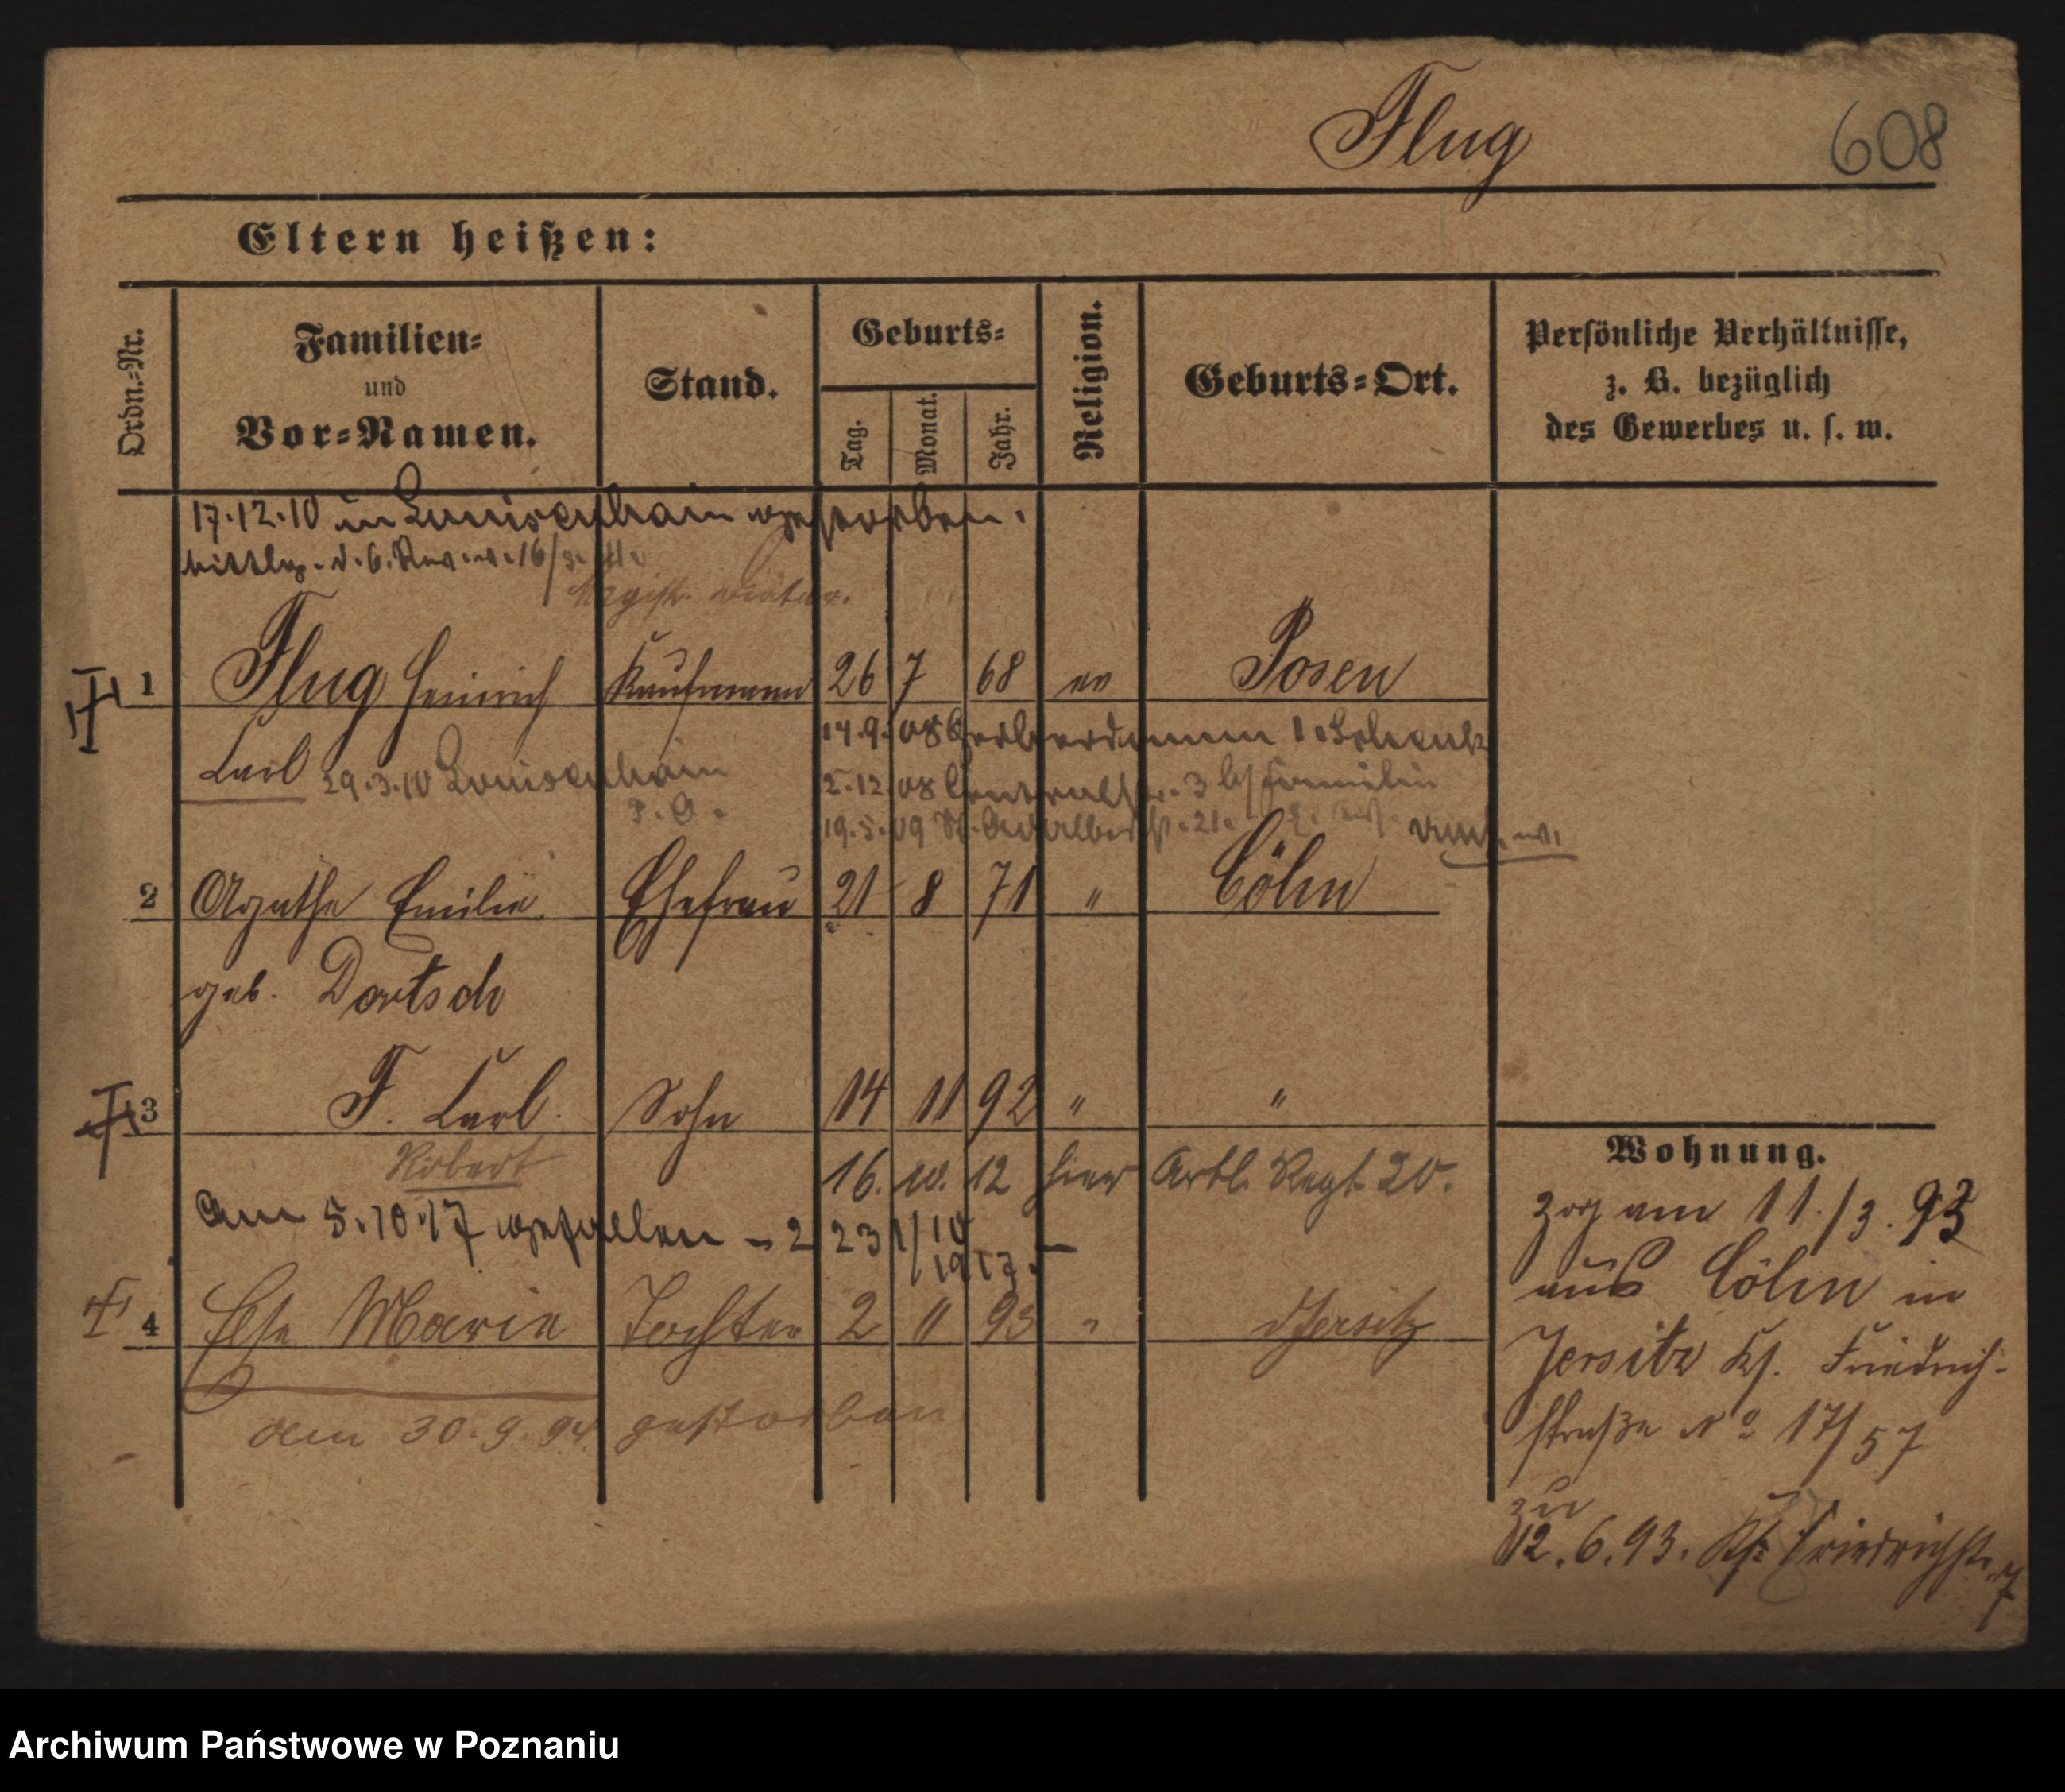 Flug 608
Eltern heißen:
Ordn.-Nr.
Familien-
und
Vor-Namen.
Stand.
Geburts-
Tag.
Monat.
Jahr.
Religion.
Geburts-Ort.
Persönliche Verhältnisse,
z. B. bezüglich
des Gewerbes u. s. w.
17.12.10 in Luisenhain gestorben.
1 Flug Heinrich Kaufmann 26 7 68 ev Posen
14.9.08 Gerberdamm 1 Schenk
Carl 29.3.10 Louisenhain
2.12.08 3
19.5.09 St. Adalbertstr. 21.
2 Agathe Emilie Ehefrau 21 8 71 " Cöln
geb. Dortsch
3 F. Carl Sohn 14 11 92 " "
Robert
16. 10. 12 hier Artl. Regt. 20.
am 5.10.17 gefallen
4 Else Marie Tochter 2 11 93 " Jersitz
den 30.9.94 gestorben
Wohnung.
zog am 11./3. 93
aus Cöln in
Jersitz Ks. Friedrich-
straße No 17/57
zu
12.6.93. Ks. Friedrichstr. 7
Archiwum Państwowe w Poznaniu